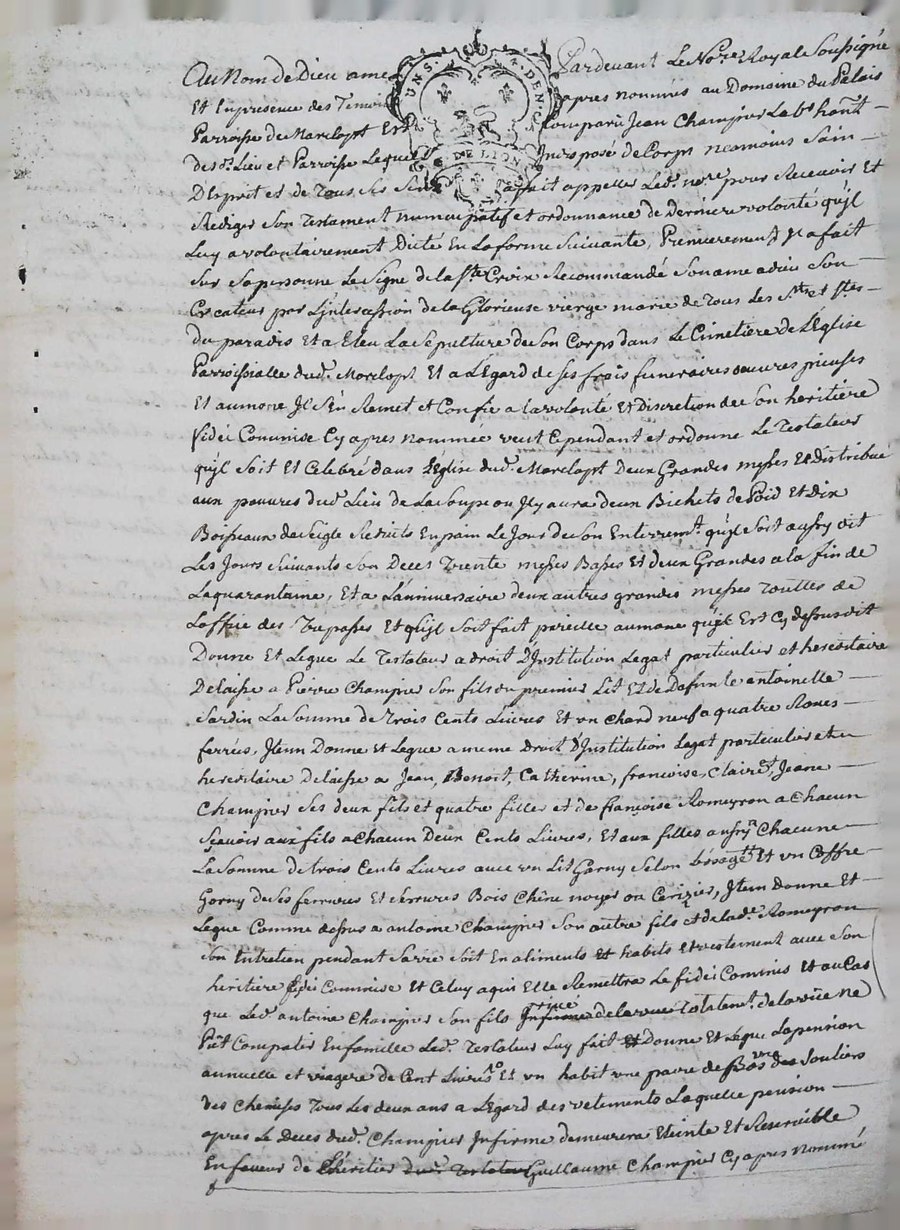 Au Nom de Dieu amen Pardevant Le No.re Royal Soussigné
Et En presence des Temoins apres nommés au Domaine du Palais
Parroisse de Marclopt Est Comparu Jean Champier Lab.r hant
des.d. Lieu et Parroisse Lequel Indisposé de Corps neamoins Sain
D'Esprit et de Tous Ses Sens a fait appeller Led. no.re pour Recevoir Et
Rediger Son Testament nuncupatif et ordonnance de Derniere volonté qu'jl
Luy a volontairement Dicté En La forme Suivante, Premierement Jl a fait
Sur Sa personne Le Signe de la S.te Croix Recommandé Son ame a dieu Son
Createur par L'jntercession de la Glorieuse vierge marie de Tous Les S.ts et S.tes
du paradis Et a Eleu La Sepulture de Son Corps dans Le Cimetiere de L'Eglise
Parroissialle dud. Marclopt Et a L'Egard de ses frais funeraires oeuvres pieuses
Et aumone Jl S'En Remet Et Confie a la volonté Et Discretion de Son heritiere
fidei Commise Cy apres nommée veut Cependant et ordonne Le Testateur
qu'jl Soit Et Celebré dans L'Eglise dud. Marclopt Deux Grandes messes Et distribué
aux pauvres dud. Lieu de La Soupe ou Jl y aura deux Bichets de Poid Et Dix
Boisseaux de Seigle Reduits En pain Le Jour de Son Enterrem.t qu'jl Soit aussy dit
Les Jours Suivants Son Deces Trente messes Basses Et deux Grandes a la fin de
La quarantaine, Et a L'anniversaire deux autres grandes messes Touttes de
L'office des Trepasses Et qu'jl Soit fait pareille aumone qu'jl Est Cy dessus dit
Donne Et Legue Le Testateur a droit D'Institution Legat particulier et hereditaire
Delaisse a Pierre Champier Son fils du premier Lit Et de Defunte antoinette
Jardin La Somme de Trois Cents Livres Et un Chard neuf a quatre Roues
ferrées, Jtem Donne et Legue a meme Droit D'Institution Legat particulier et
hereditaire Delaisse a Jean, Benoit, Catherine, francoise, Claire, Jeane
Champier Ses deux fils et quatre filles et de françoise Romeyron a Chacun
Sçavoir aux fils a Chacun Deux Cents Livres, Et aux filles aussy a Chacune
La Somme de trois Cents Livres avec un Lit Garny Selon L'usage Et un Coffre
Garny de Ses ferrures Et Serrures Bois Chêne noyer ou Cerizier, Jtem Donne Et
Legue Comme dessus a antoine Champier Son autre fils et de lad. Romeyron
Son Entretien pendant Sa vie Soit En aliments et habits Et vestement avec Son
heritiere fidei Commise Et Celuy a qui Elle Remettra Le fidei Commis Et au Cas
que Led. antoine Champier Son fils privé de la vuë ne
Put Compatir En famille Led. Testateur Luy fait Donne Et Legue La pension
annuelle et viagere de Cent Livres Et un habit une paire de Bas des Souliers
des Chemises Tous Les deux ans a L'Egard des vetements Laquelle pension
apres Le Deces dud. Champier Infirme demeurera Eteinte Et Reversible
En faveur de L'heritier dud. Testateur Guillaume Champier Cy apres nommé